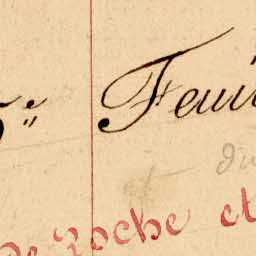 5e Feui
du
de poche et